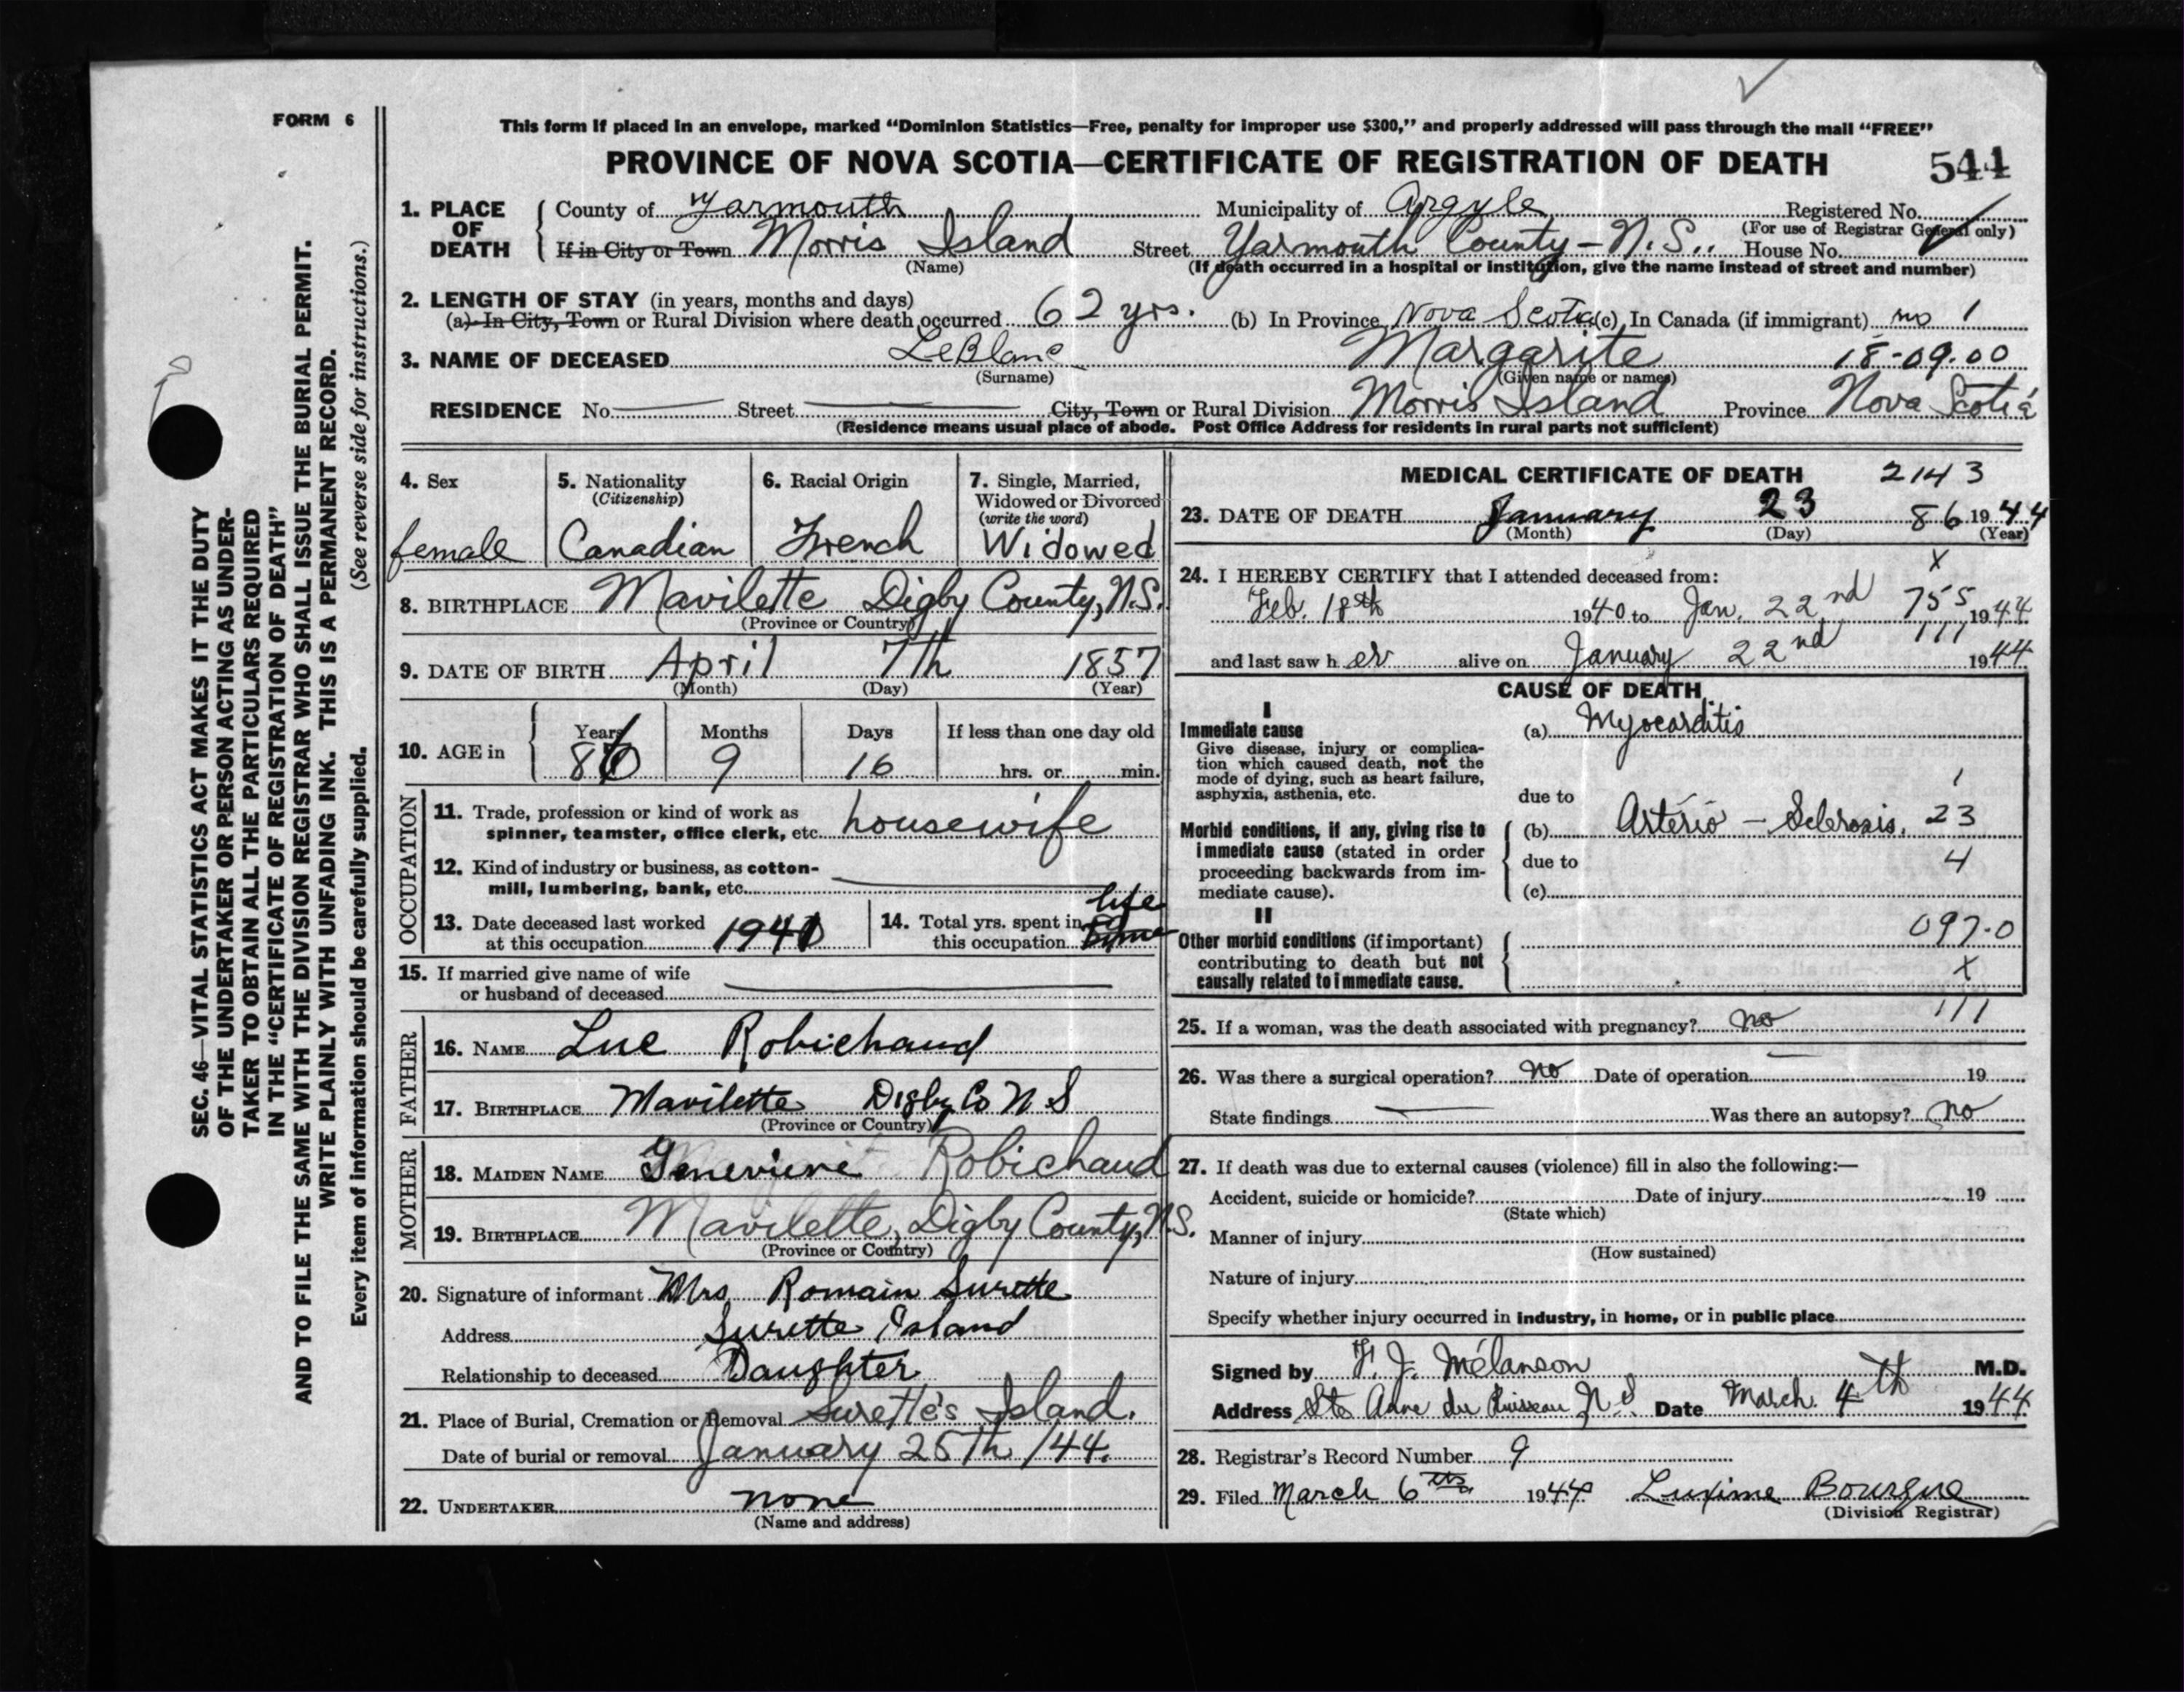 FORM 6
This form if placed in an envelope, marked “Dominion Statistics—Free, penalty for improper use $300,” and properly addressed will pass through the mail “FREE”
PROVINCE OF NOVA SCOTIA—CERTIFICATE OF REGISTRATION OF DEATH 544
1. PLACE OF DEATH County of Yarmouth Municipality of Argyle Registered No.
(For use of Registrar General only)
If in City or Town Morris Island Street Yarmouth County - N.S.. House No.
(Name) (If death occurred in a hospital or institution, give the name instead of street and number)
2. LENGTH OF STAY (in years, months and days)
(a) In City, Town or Rural Division where death occurred 62 yrs. (b) In Province Nova Scotia (c) In Canada (if immigrant) no 1
3. NAME OF DECEASED LeBlanc Margarite 18-09.00
(Surname) (Given name or names)
RESIDENCE No. Street City, Town or Rural Division Morris Island Province Nova Scotia
(Residence means usual place of abode. Post Office Address for residents in rural parts not sufficient)
4. Sex female
5. Nationality (Citizenship) Canadian
6. Racial Origin French
7. Single, Married, Widowed or Divorced (write the word) Widowed
8. BIRTHPLACE Mavilette Digby County, N.S.
(Province or Country)
9. DATE OF BIRTH April 7th 1857
(Month) (Day) (Year)
10. AGE in Years 86 Months 9 Days 16 If less than one day old hrs. or min.
OCCUPATION
11. Trade, profession or kind of work as spinner, teamster, office clerk, etc. housewife
12. Kind of industry or business, as cotton-mill, lumbering, bank, etc.
13. Date deceased last worked at this occupation 1941
14. Total yrs. spent in this occupation life time
15. If married give name of wife or husband of deceased
FATHER
16. NAME Luc Robichaud
17. BIRTHPLACE Mavilette Digby Co N S
(Province or Country)
MOTHER
18. MAIDEN NAME Genevieve Robichaud
19. BIRTHPLACE Mavilette, Digby County, N.S.
(Province or Country)
20. Signature of informant Mrs Romain Surette
Address Surette Island
Relationship to deceased Daughter
21. Place of Burial, Cremation or Removal Surette's Island.
Date of burial or removal January 25th /44.
22. UNDERTAKER none
(Name and address)
MEDICAL CERTIFICATE OF DEATH 2143
23. DATE OF DEATH January 23 86 1944
(Month) (Day) (Year)
x
24. I HEREBY CERTIFY that I attended deceased from:
Feb. 18th 1940 to Jan. 22nd 755 1944
111
and last saw her alive on January 22nd 1944
CAUSE OF DEATH
I
Immediate cause
Give disease, injury or complication which caused death, not the mode of dying, such as heart failure, asphyxia, asthenia, etc.
(a) Myocarditis
due to 1
Morbid conditions, if any, giving rise to immediate cause (stated in order proceeding backwards from immediate cause).
(b) Arterio - Sclerosis. 23
due to 4
(c)
II
Other morbid conditions (if important) contributing to death but not causally related to immediate cause.
097.0
x
111
25. If a woman, was the death associated with pregnancy? no
26. Was there a surgical operation? no Date of operation 19
State findings Was there an autopsy? no
27. If death was due to external causes (violence) fill in also the following:—
Accident, suicide or homicide? Date of injury 19
(State which)
Manner of injury
(How sustained)
Nature of injury
Specify whether injury occurred in industry, in home, or in public place
Signed by F. J. Mélanson M.D.
Address Ste Anne du Ruisseau N S Date March 4th 1944
28. Registrar's Record Number 9
29. Filed March 6th 1944 Luxime Bourque
(Division Registrar)
SEC. 46—VITAL STATISTICS ACT MAKES IT THE DUTY
OF THE UNDERTAKER OR PERSON ACTING AS UNDER-
TAKER TO OBTAIN ALL THE PARTICULARS REQUIRED
IN THE “CERTIFICATE OF REGISTRATION OF DEATH”
AND TO FILE THE SAME WITH THE DIVISION REGISTRAR WHO SHALL ISSUE THE BURIAL PERMIT.
WRITE PLAINLY WITH UNFADING INK. THIS IS A PERMANENT RECORD.
Every item of information should be carefully supplied. (See reverse side for instructions.)